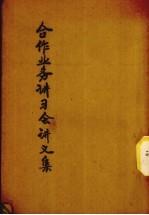 合作业务讲习会讲义集